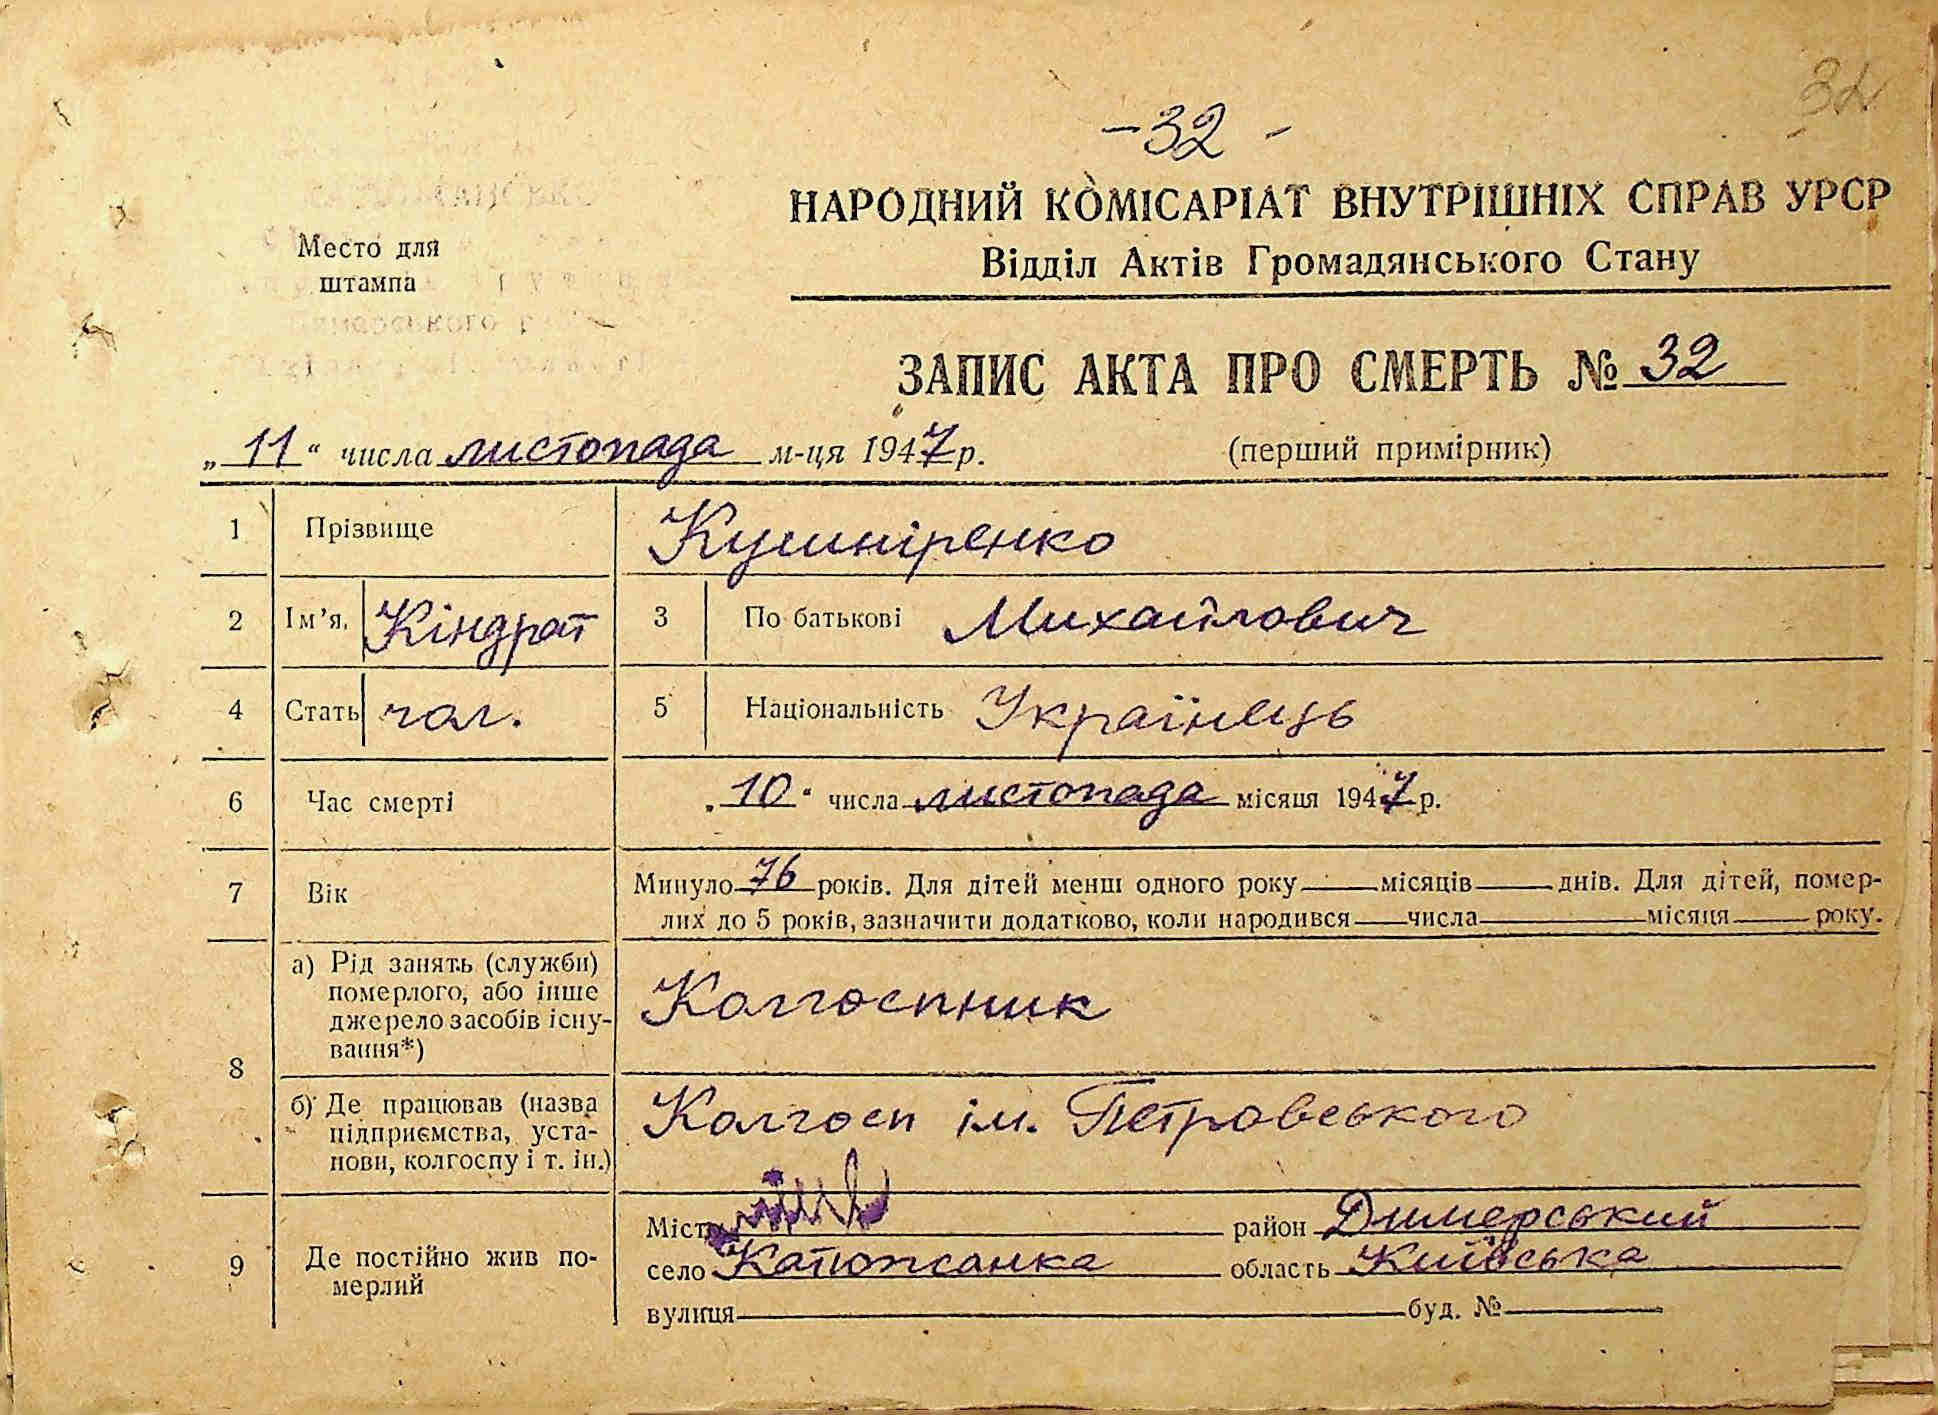 32
- 32 -
НАРОДНИЙ КОМІСАРІАТ ВНУТРІШНІХ СПРАВ УРСР
Відділ Актів Громадянського Стану
Место для
штампа
ЗАПИС АКТА ПРО СМЕРТЬ № 32
„11“ числа листопада м-ця 1947 р. (перший примірник)
1 Прізвище Кушніренко
2 Ім'я, Кіндрат 3 По батькові Михайлович
4 Стать чол. 5 Національність Українець
6 Час смерті „10“ числа листопада місяця 1947 р.
7 Вік Минуло 76 років. Для дітей менш одного року — місяців — днів. Для дітей, помер-
лих до 5 років, зазначити додатково, коли народився — числа — місяця — року.
8 а) Рід занять (служби)
померлого, або інше
джерело засобів існу-
вання*) Колгоспник
б) Де працював (назва
підприємства, уста-
нови, колгоспу і т. ін.) Колгосп ім. Петровського
9 Де постійно жив по-
мерлий
Місто район Димерський
село Катюжанка область Київська
вулиця буд. №